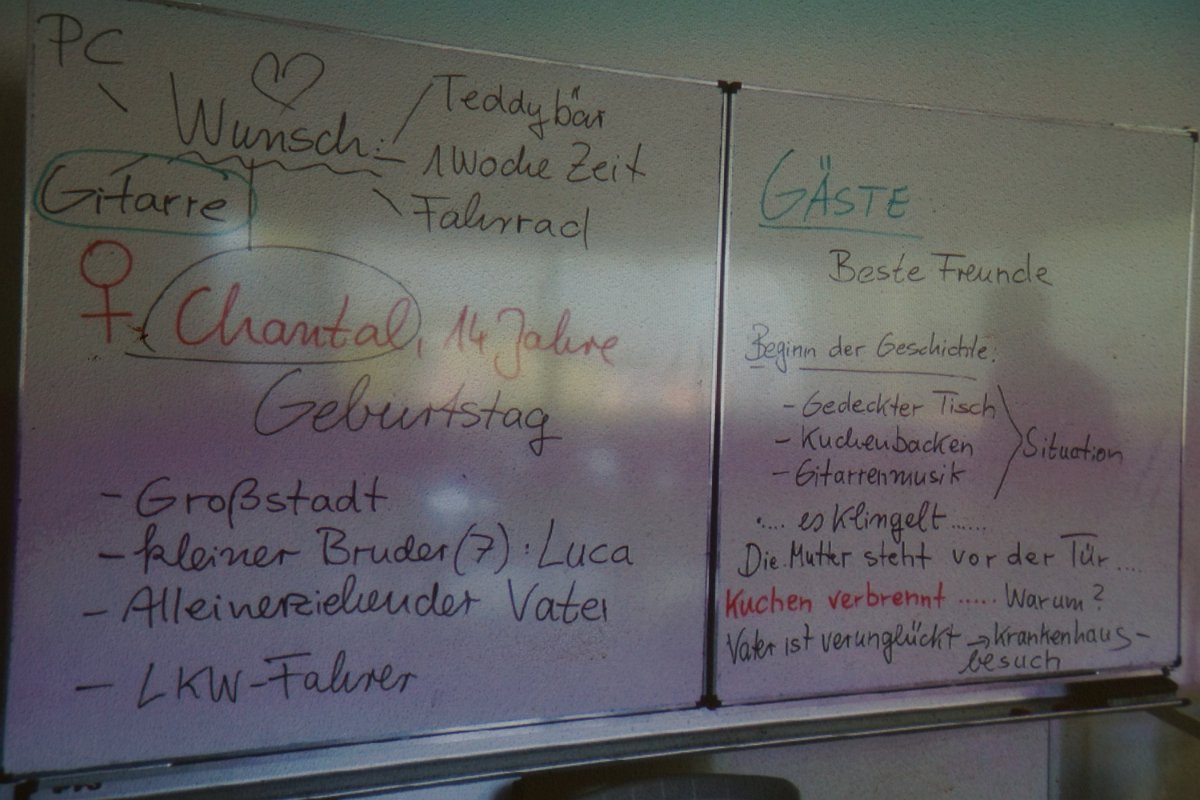 PC
Wunsch:
Teddybär
1 Woche Zeit
Fahrrad
Gitarre
Chantal, 14 Jahre
Geburtstag
- Großstadt
- kleiner Bruder (7): Luca
- Alleinerziehender Vater
- LKW-Fahrer
GÄSTE
Beste Freunde
Beginn der Geschichte:
- Gedeckter Tisch
- Kuchenbacken
- Gitarrenmusik
Situation
..... es klingelt ......
Die Mutter steht vor der Tür ....
Kuchen verbrennt ..... Warum?
Vater ist verunglückt → Krankenhaus-
besuch